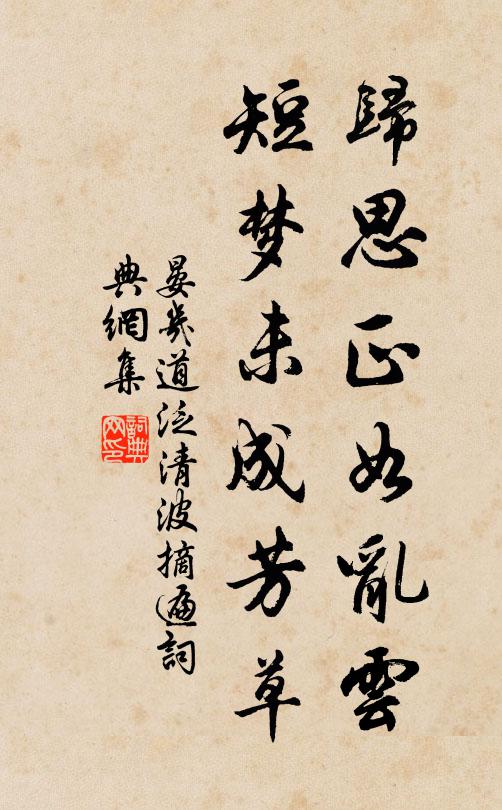 歸思正如亂雲
短梦未成芳草
晏幾道泛清波摘遍詞
典網集
詞典
网印